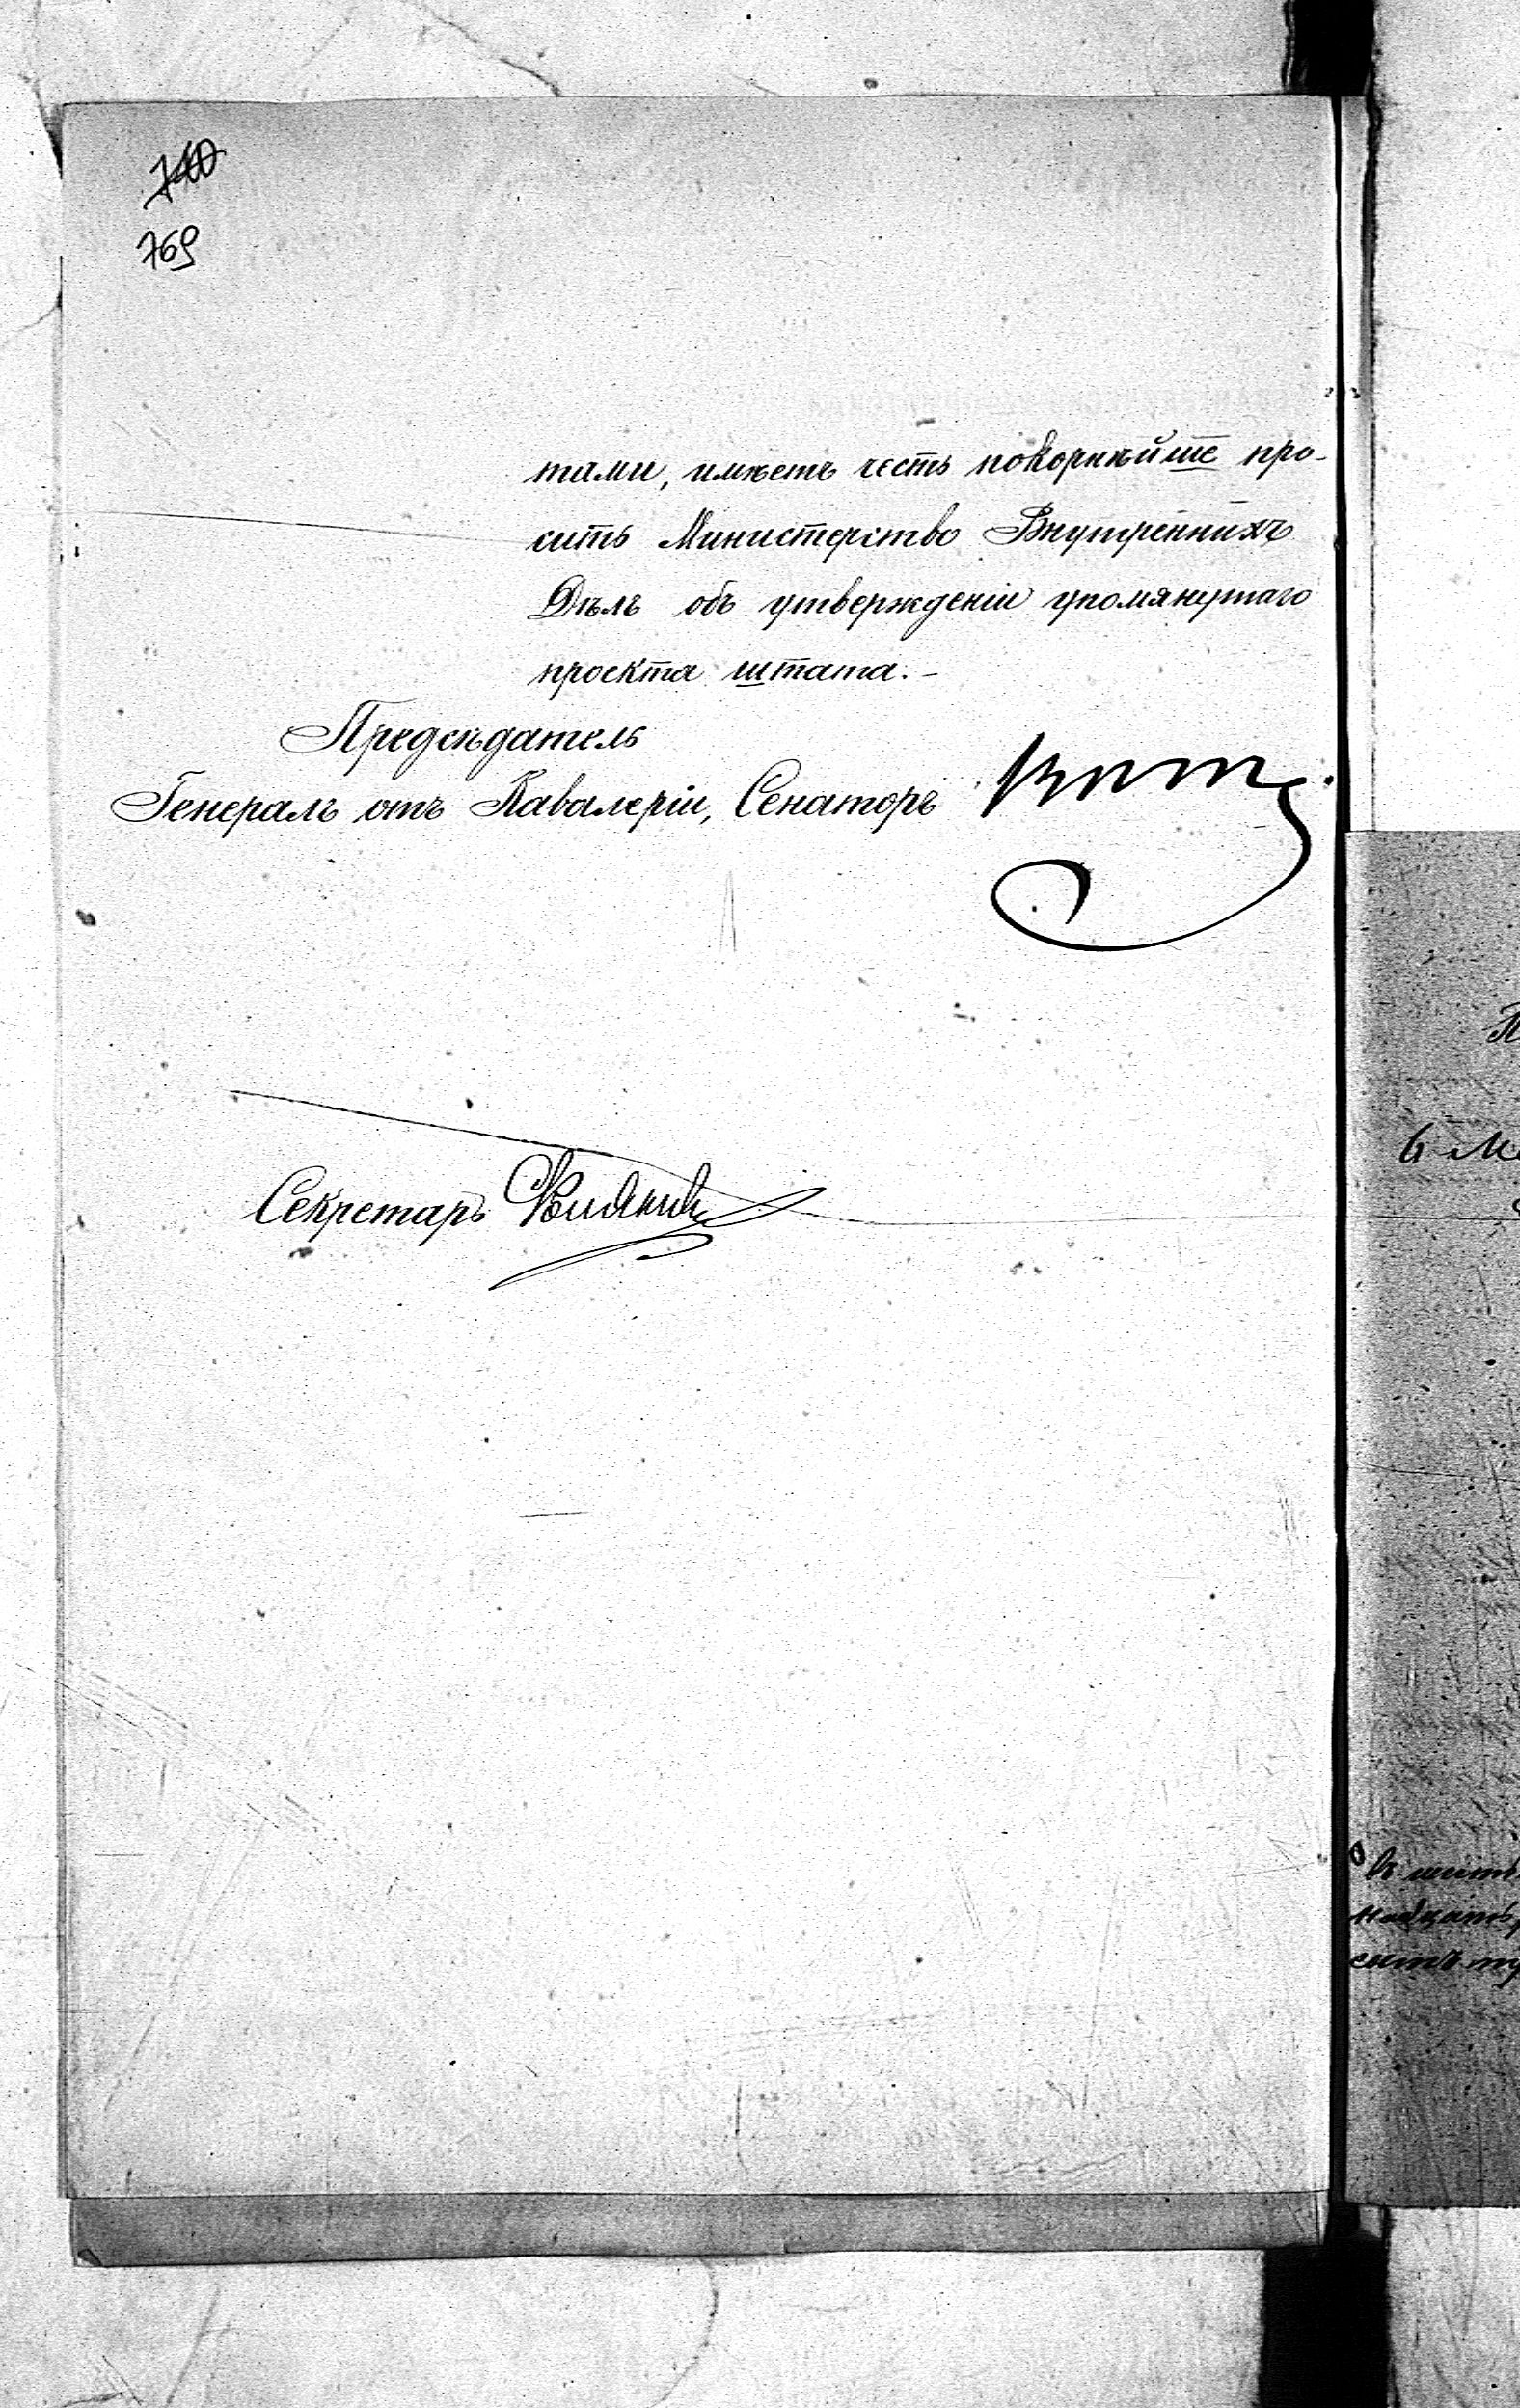 740
769
тами, имѣетъ честь покорнѣйше про-
сить Министерство Внутреннихъ
Дѣлъ объ утвержденіи упомянутаго
проекта штата.-
Предсѣдатель
Генералъ отъ Кавалеріи, Сенаторъ
Секретарь